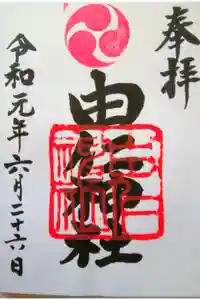 奉拝
神社
令和元年六月二十六日